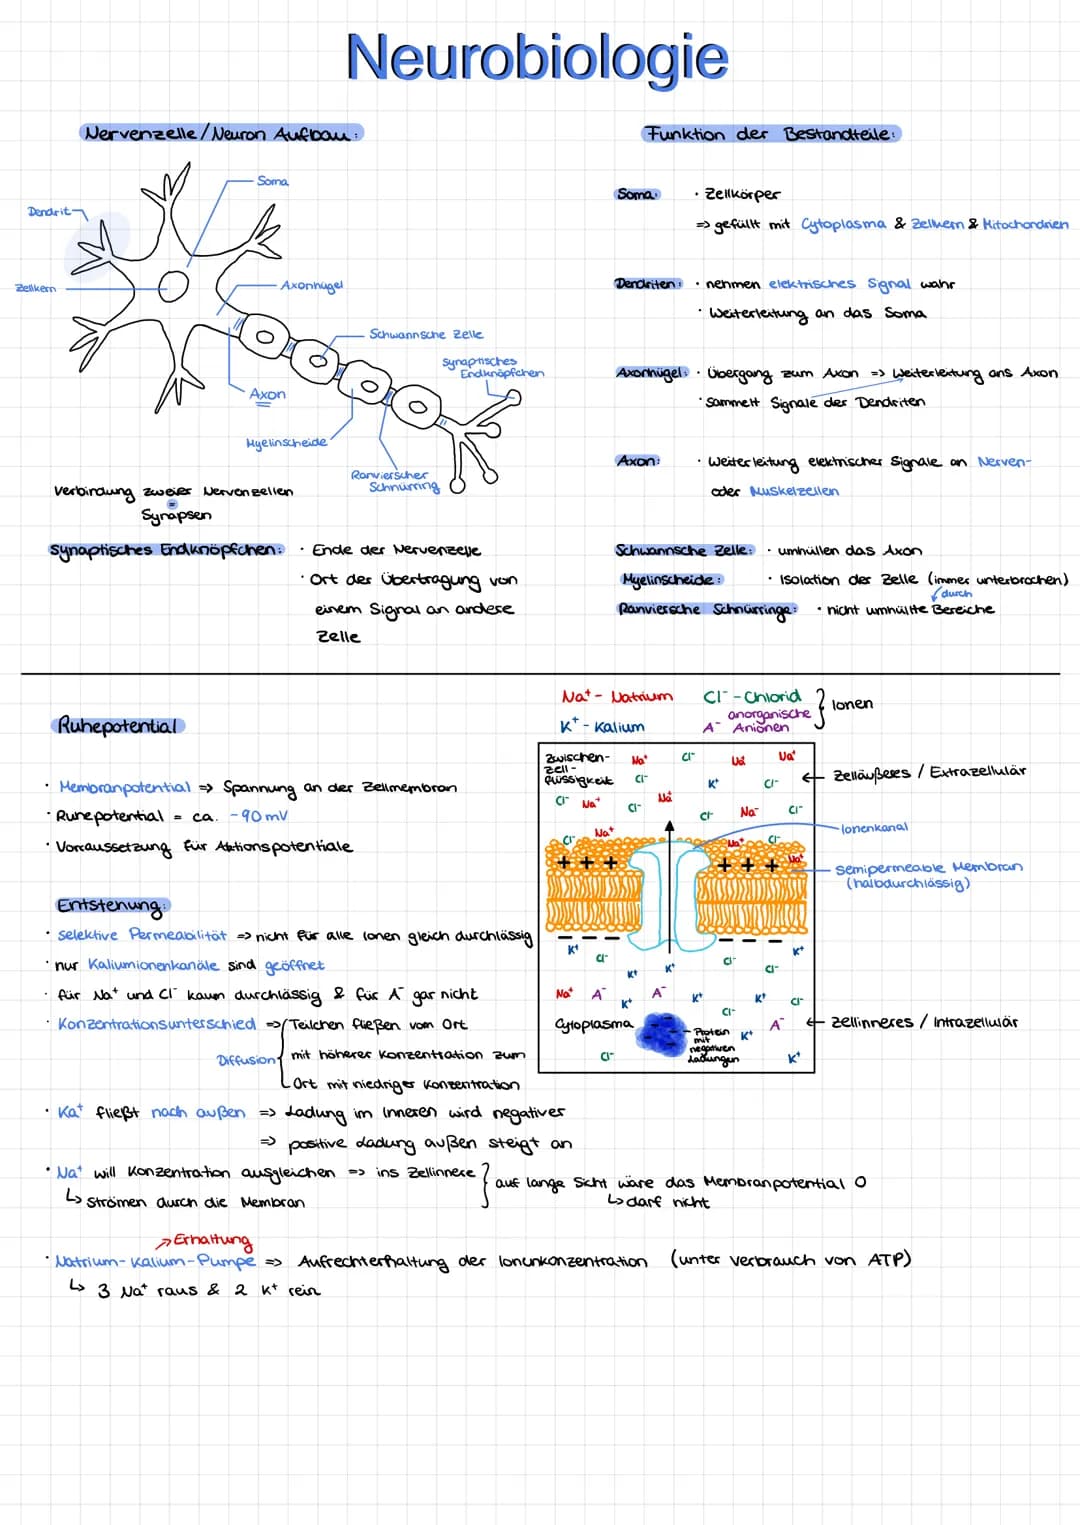 Neurobiologie
Nervenzelle/Neuron Aufbau:
Soma
Dendrit
Zellkern
Axonhügel
Schwannsche Zelle
Synaptisches
Endknöpfchen
Axon
Myelinscheide
Ranvierscher
Schnürring
Verbindung zweier Nervenzellen
=
Synapsen
Synaptisches Endknöpfchen: · Ende der Nervenzelle
· Ort der Übertragung von
einem Signal an andere
Zelle
Funktion der Bestandteile:
Soma: · Zellkörper
=> gefüllt mit Cytoplasma & Zellkern & Mitochondrien
Dendriten: · nehmen elektrisches Signal wahr
· Weiterleitung an das Soma
Axonhügel: · Übergang zum Axon => Weiterleitung ans Axon
· sammelt Signale der Dendriten
Axon: · Weiterleitung elektrischer Signale an Nerven-
oder Muskelzellen
Schwannsche Zelle: · umhüllen das Axon
Myelinscheide: · Isolation der Zelle (immer unterbrochen)
durch
Ranviersche Schnürringe: · nicht umhüllte Bereiche
Ruhepotential
· Membranpotential => Spannung an der Zellmembran
· Ruhepotential = ca. -90mV
· Vorraussetzung für Aktionspotentiale
Entstehung:
· Selektive Permeabilität => nicht für alle Ionen gleich durchlässig
· nur Kaliumionenkanäle sind geöffnet
· für Na⁺ und Cl⁻ kaum durchlässig & für A⁻ gar nicht
· Konzentrationsunterschied => Teilchen fließen vom Ort
Diffusion mit höherer Konzentration zum
Ort mit niedriger Konzentration
· Ka⁺ fließt nach außen => Ladung im Inneren wird negativer
=> positive Ladung außen steigt an
· Na⁺ will Konzentration ausgleichen => ins Zellinnere
↳ Strömen durch die Membran
auf lange Sicht wäre das Membranpotential 0
↳ darf nicht
→ Erhaltung
· Natrium-Kalium-Pumpe => Aufrechterhaltung der Ionunkonzentration (unter Verbrauch von ATP)
↳ 3 Na⁺ raus & 2 K⁺ rein
Na⁺ - Natrium Cl⁻ - Chlorid
K⁺ - Kalium A⁻ anorganische Anionen
Ionen
Zwischen-
zell-
flüssigkeit
Na⁺ Cl⁻ Na⁺ Na⁺
Cl⁻ K⁺ Cl⁻
Cl⁻ Na⁺ Cl⁻ Na⁺ Cl⁻ Na⁻ Cl⁻
Cl⁻ Na⁺ Na⁺ Cl⁻ Na⁺
+ + + + + +
– – – – – –
K⁺ Cl⁻ Cl⁻ K⁺
K⁺ K⁺ Cl⁻
Na⁺ A⁻ K⁺ A⁻ K⁺ K⁺ Cl⁻
Cl⁻
Cytoplasma
K⁺ A⁻
Protein
mit
negativen
Ladungen
Cl⁻ K⁺
← Zelläußeres / Extrazellulär
Ionenkanal
Semipermeable Membran
(halbdurchlässig)
← Zellinneres / Intrazellulär